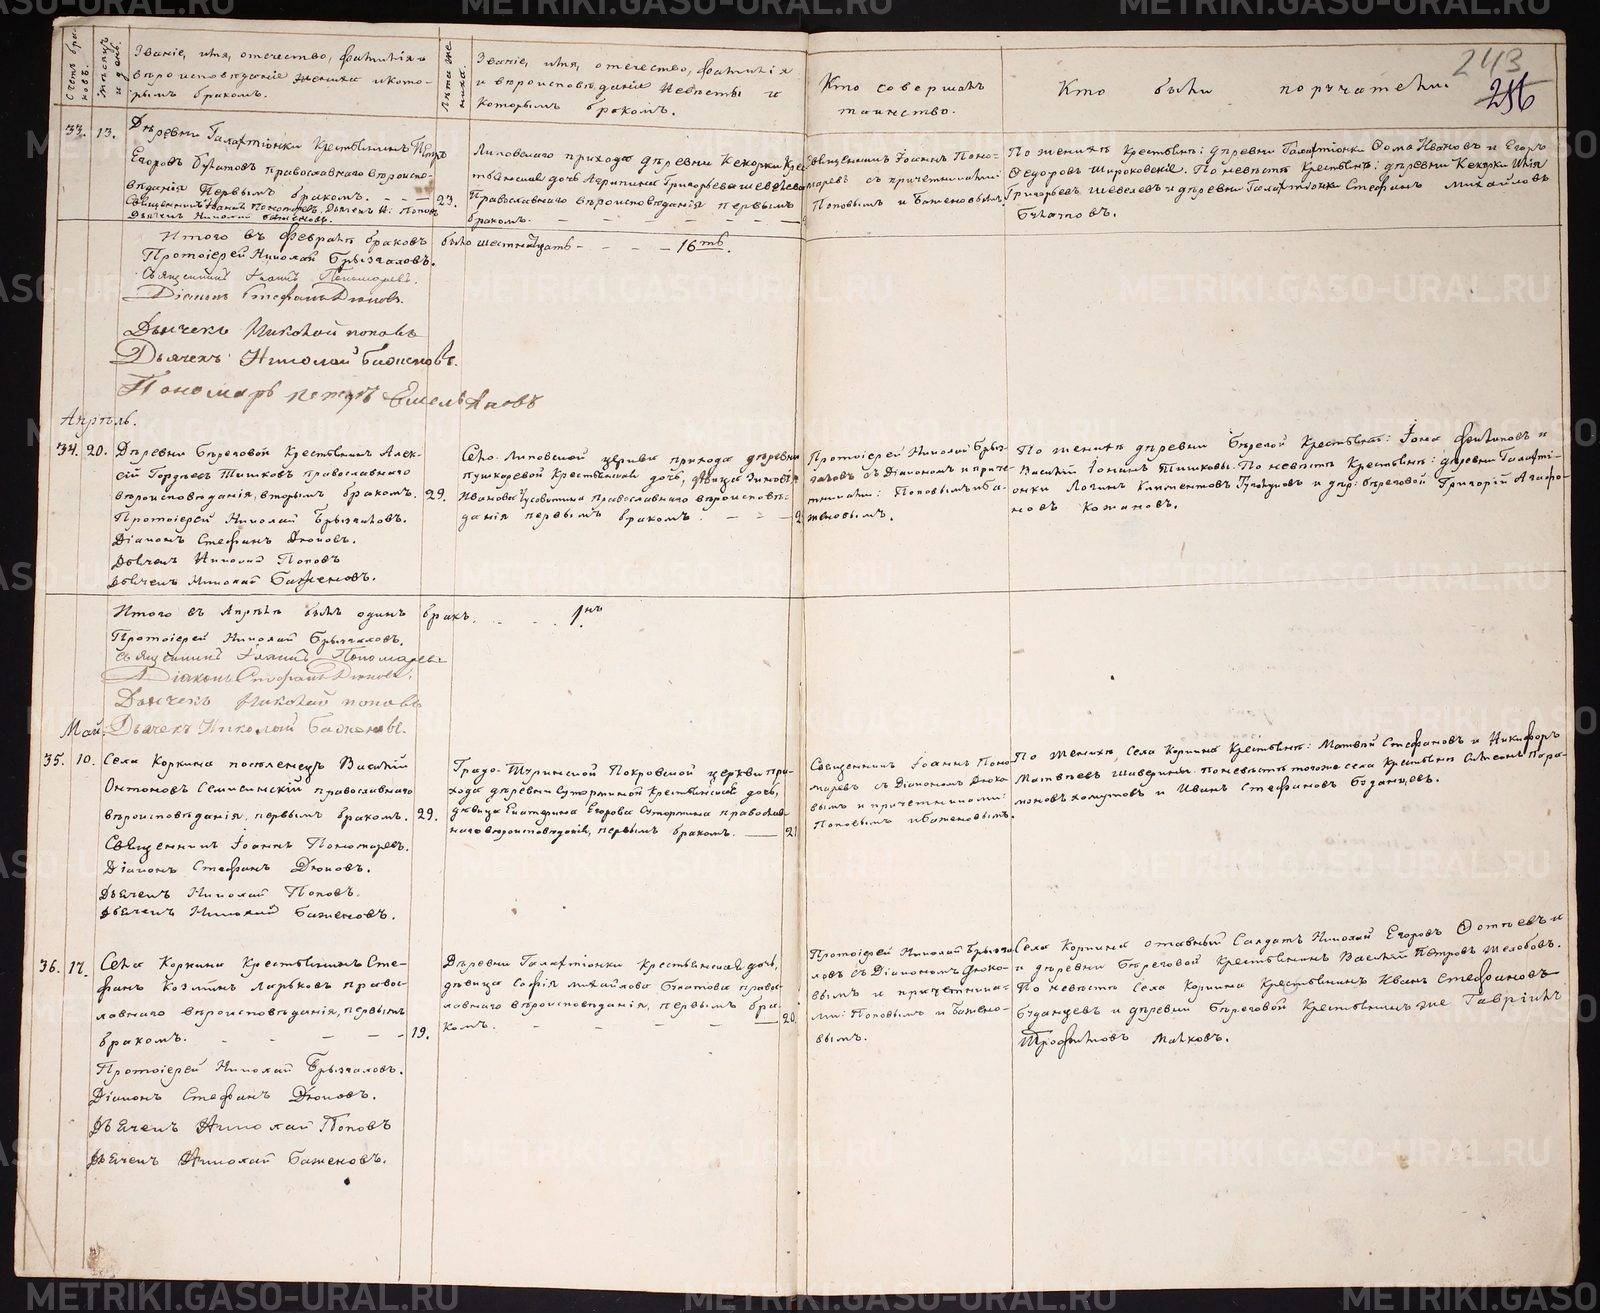 Счетъ бра-
ковъ.
Мѣсяцъ
и день.
Званіе, имя, отечество, фамилія и
вѣроисповѣданіе жениха и кото-
рымъ бракомъ.
Лѣта же-
ниха.
Званіе, имя, отечество, фамилія
и вѣроисповѣданіе невѣсты и
которымъ бракомъ.
Кто совершалъ
таинство.
Кто были поручатели.
243
256
33. 13.
Деревни Галактіонки Крестьянинъ Петръ
Егоровъ Булатовъ православнаго вѣроиспо-
вѣданія первымъ бракомъ.
Священникъ Іоаннъ Пономаревъ. Дьячекъ Н. Поповъ
Дьячекъ Николай Баженовъ.
23.
Липовскаго прихода деревни Кекорки Крес-
тьянская дочь Агрипина Григорьева Шевелева
Православнаго вѣроисповѣданія первымъ
бракомъ.
Священникъ Іоаннъ Поно-
маревъ съ причетниками:
Поповымъ и Баженовымъ
По женихѣ Крестьяне: деревни Галактіонки Ѳома Ивановъ и Егоръ
Ѳедоровъ Широковскіе. По невѣстѣ Крестьяне: деревни Кекорки Илія
Григорьевъ Шевелевъ и деревни Галактіонки Стефанъ Михайловъ
Булатовъ.
Итого въ Февралѣ браковъ было шестнадцать - - - 16ть.
Протоіерей Николай Брызгаловъ.
Священникъ Іоаннъ Пономаревъ.
Діаконъ Стефанъ Дюковъ.
Дьячекъ Николай Поповъ
Дьячекъ Николай Баженовъ.
Пономарь Петръ Емельяновъ
Апрѣль.
34. 20.
Деревни Береговой Крестьянинъ Алек-
сѣй Гордѣевъ Тишковъ православнаго
вѣроисповѣданія, вторымъ бракомъ.
29.
Протоіерей Николай Брызгаловъ.
Діаконъ Стефанъ Дюковъ.
Дьячекъ Николай Поповъ
Дьячекъ Николай Баженовъ.
Село-Липовской церкви прихода деревни
Пушкаревой Крестьянская дочь, дѣвица Зиновія
Иванова православнаго вѣроисповѣ-
данія первымъ бракомъ.
Протоіерей Николай Брыз-
галовъ съ Діакономъ и приче-
тниками: Поповымъ и Ба-
женовымъ.
По женихѣ деревни Береговой Крестьяне: Іона Филиповъ и
Василій Іонинъ Тишковы. По невѣстѣ Крестьяне: деревни Галакті-
онки Логинъ Климентовъ и дер: Береговой Григорій Агафо-
новъ Кожановъ.
Итого въ Апрѣлѣ былъ одинъ бракъ. - - - 1нъ
Протоіерей Николай Брызгаловъ.
Священникъ Іоаннъ Пономаревъ
Діаконъ Стефанъ Дюковъ.
Дьячекъ Николай Поповъ
Май. Дьячекъ Николай Баженовъ.
35. 10.
Села Коркина поселенецъ Василій
Онтоновъ православнаго
вѣроисповѣданія, первымъ бракомъ.
29.
Священникъ Іоаннъ Пономаревъ.
Діаконъ Стефанъ Дюковъ.
Дьячекъ Николай Поповъ.
Дьячекъ Николай Баженовъ.
Градо-Туринской Покровской церкви при-
хода деревни Сутормина Крестьянская дочь,
дѣвица Екатерина Егорова Сутормина православ-
наго вѣроисповѣданія, первымъ бракомъ. 21
Священникъ Іоаннъ Поно-
маревъ съ Діакономъ Дюко-
вымъ и причетниками:
Поповымъ и Баженовымъ.
По женихѣ Села Коркина Крестьяне: Матвѣй Стефановъ и Никифоръ
Матвѣевъ Шаверины. По невѣстѣ того же села Крестьяне Симеонъ Пара-
моновъ Хомутовъ и Иванъ Стефановъ Буданцевъ.
36. 17.
Села Коркина Крестьянинъ Сте-
фанъ Козминъ Ларьковъ право-
славнаго вѣроисповѣданія, первымъ
бракомъ.
19.
Протоіерей Николай Брызгаловъ.
Діаконъ Стефанъ Дюковъ.
Дьячекъ Николай Поповъ
Дьячекъ Николай Баженовъ.
Деревни Галактіонки Крестьянская дочь,
дѣвица Софія Михайлова Булатова право-
славнаго вѣроисповѣданія, первымъ бра-
комъ. 20.
Протоіерей Николай Брызга-
ловъ съ Діакономъ Дюко-
вымъ и причетника-
ми: Поповымъ и Бажено-
вымъ.
Села Коркина отставный Солдатъ Николай Егоровъ Ѳотѣевъ и
и деревни Береговой Крестьянинъ Василій Петровъ Желобовъ.
По невѣстѣ Села Коркина Крестьянинъ Иванъ Стефановъ
Буданцевъ и деревни Береговой Крестьянинъ же Гавріилъ
Трофимовъ Малковъ.
METRIKI.GASO-URAL.RU